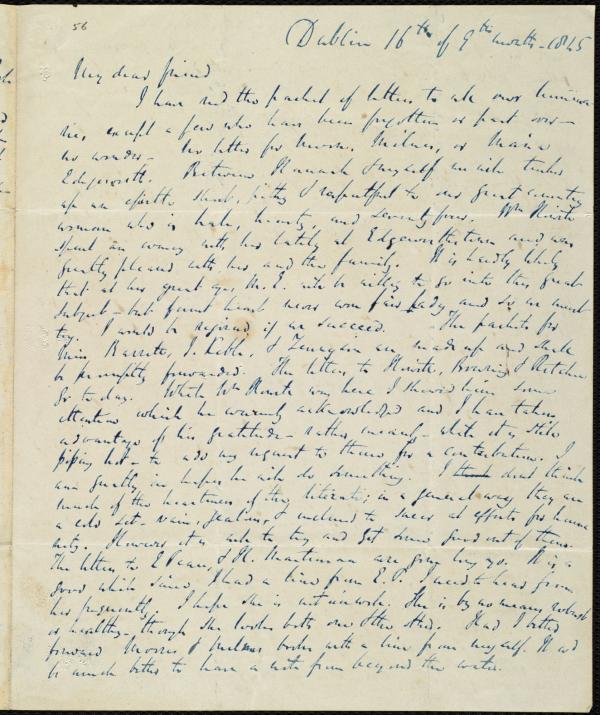 56
Dublin 16th of 9th month - 1845
My dear friend
I have red the packet of letters to all our
except a few who have been forgotten or past over -
no wonder - No letter for Moore, Milnes, or Maria
Edgeworth. Between Hannah & myself we will
up an epistle short, pithy & respectful to our great country
woman who is hale, hearty, and seventy five. Wm Howitt
spent an evening with her lately at Edgeworthstown and was
greatly pleased with her and the family. It is hardly likely
that at her great age, M. E. will be willing to go into this great
subject - but faint heart never won fair Lady and so we must
try. I would be rejoiced if we succeed. - The packets for
Miss Barrett, J. Keble, & Tennyson are made up and shall
be promptly forwarded. The letters to Howitt, Bowring & Fletcher
go to day. While Wm Howitt was here I showed him some
attention which he warmly acknowledged and I have taken
advantage of his gratitude - rather meanly - while it is still
piping hot - to add my request to theirs for a contribution. I
am greatly in hopes he will do something. I dont think
much of the heartiness of the literati; in a general way they are
a cold set - vain, jealous & inclined to sneer at efforts for human
ity. However it is well to try and get some good out of them.
The letters to E Pease, & H. Martineau are gone long ago. It is a
good while since I had a line from E. P. I used to hear from
her frequently. I hope she is not unwell. She is by no means robust
or healthy - though she looks both one & the other. Had I better
forward Moore's & Milnes books with a line from myself. It wd
be much better to have a note from beyond the water.